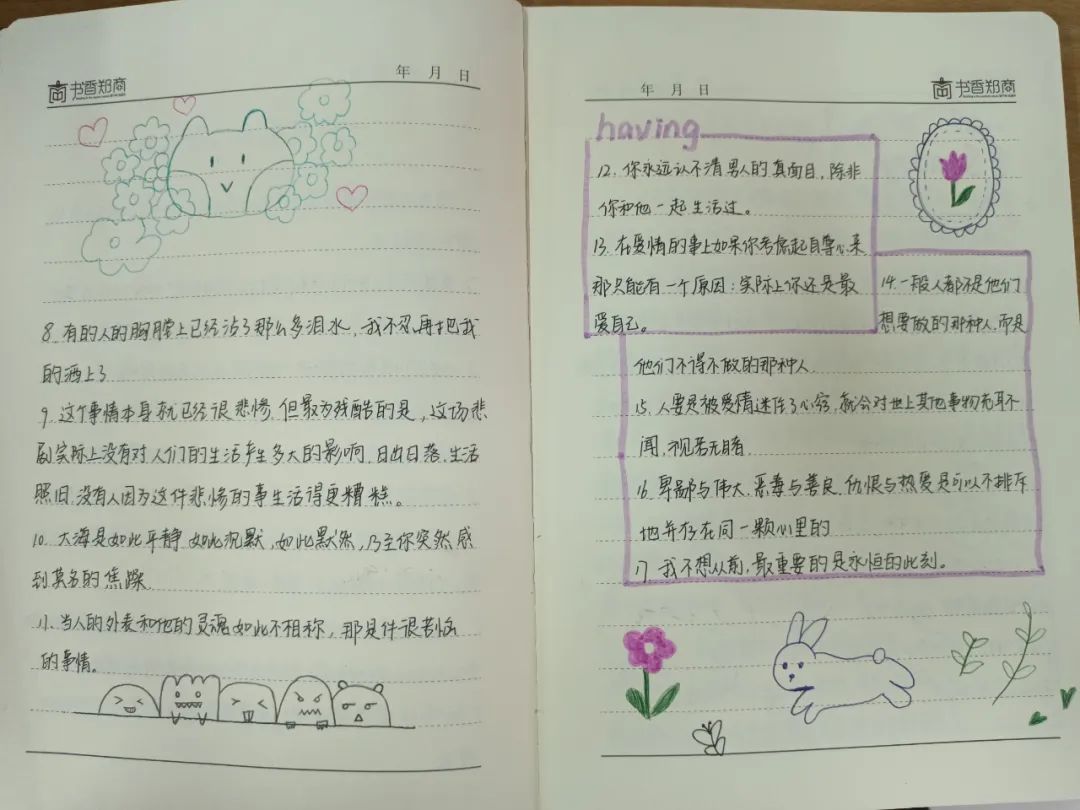 书香郑商
年 月 日
8. 有的人的胸膛上已经沾了那么多泪水，我不忍再把我
的洒上了
9. 这个事情本身就已经很悲惨，但最为残酷的是，这场悲
剧实际上没有对人们的生活产生多大的影响，日出日落，生活
照旧，没有人因为这件悲惨的事生活得更糟糕。
10. 大海是如此平静，如此沉默，如此默然，乃至你突然感
到莫名的焦躁
11. 当人的外表和他的灵魂如此不相称，那是件很苦恼
的事情。
年 月 日
书香郑商
having
12. 你永远认不清男人的真面目，除非
你和他一起生活过。
13. 在爱情的事上如果你考虑起自尊心来
那只能有一个原因：实际上你还是最
爱自己。
14. 一般人都不是他们
想要做的那种人，而是
他们不得不做的那种人
15. 人要是被爱情迷住了心窍，就会对世上其他事物充耳不
闻，视若无睹
16. 卑鄙与伟大，恶毒与善良，仇恨与热爱是可以不排斥
地并存在同一颗心里的
17. 我不想从前，最重要的是永恒的此刻。